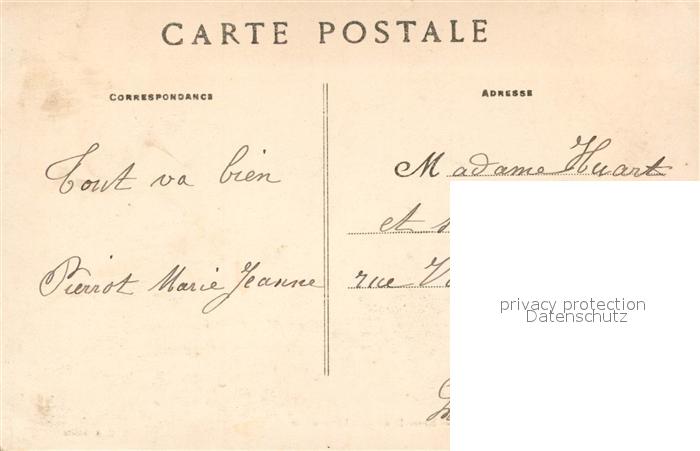 CARTE POSTALE
CORRESPONDANCE
Tout va bien
Pierrot Marie Jeanne
ADRESSE
Madame Huart
et
rue
privacy protection
Datenschutz